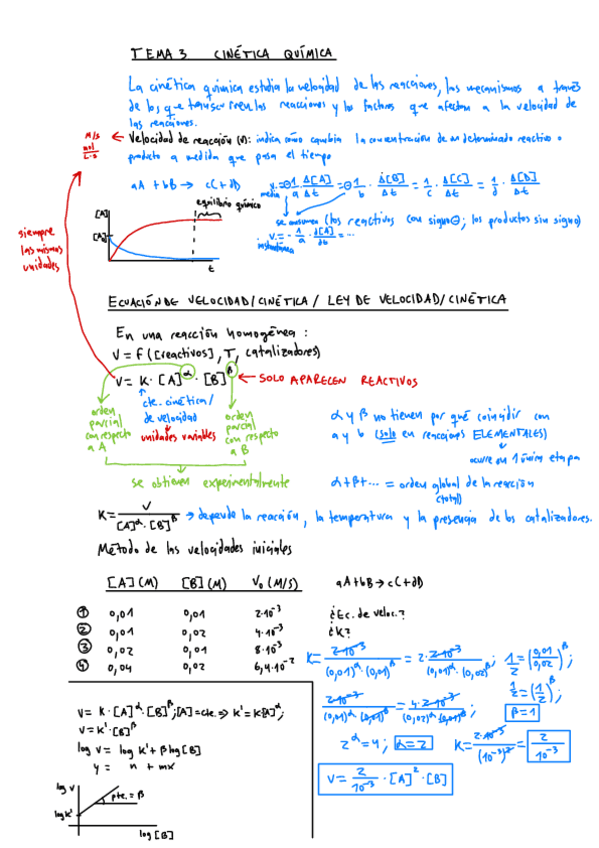 TEMA 3 CINÉTICA QUÍMICA
La cinética química estudia la velocidad de las reacciones, los mecanismos a través
de los que transcurren las reacciones y los factores que afectan a la velocidad de
las reacciones.
M/s
mol/L·s
← Velocidad de reacción (v): indica cómo cambia la concentración de un determinado reactivo o
producto a medida que pasa el tiempo
aA + bB → cC + dD
v media = ⊖ 1/a · Δ[A]/Δt = ⊖ 1/b · Δ[B]/Δt = 1/c · Δ[C]/Δt = 1/d · Δ[D]/Δt
equilibrio químico
[A]
[A]₀
t
se asumen (los reactivos con signo ⊖; los productos sin signo)
v instantánea = - 1/a · d[A]/dt = ...
siempre
las mismas
unidades
ECUACIÓN DE VELOCIDAD/CINÉTICA / LEY DE VELOCIDAD/CINÉTICA
En una reacción homogénea:
V = f ([reactivos], T, catalizadores)
V = K · [A]^α · [B]^β ← SOLO APARECEN REACTIVOS
cte. cinética/
de velocidad
unidades variables
orden
parcial
con respecto
a A
orden
parcial
con respecto
a B
se obtienen experimentalmente
α y β no tienen por qué coincidir con
a y b (solo en reacciones ELEMENTALES)
ocurre en 1 única etapa
α+β+... = orden global de la reacción
(total)
K = V/([A]^α · [B]^β) → depende la reacción, la temperatura y la presencia de los catalizadores.
Método de las velocidades iniciales
[A] (M) [B] (M) V₀ (M/S)
① 0,01 0,01 2·10⁻³
② 0,01 0,02 4·10⁻³
③ 0,02 0,01 8·10⁻³
④ 0,04 0,02 6,4·10⁻²
aA + bB → cC + dD
¿Ec. de veloc.?
¿K?
K = 2·10⁻³/((0,01)^α · (0,01)^β) = 2· 2·10⁻³/((0,01)^α · (0,02)^β); 1/2 = (0,01/0,02)^β;
1/2 = (1/2)^β;
β=1
2·10⁻³/((0,01)^α · (0,01)^β) = 4·2·10⁻³/((0,02)^α · (0,01)^β)
2^α = 4; α=2
K = 2·10⁻³/(10⁻³)² = 2/10⁻³
V = 2/10⁻³ · [A]² · [B]
V = K · [A]^α · [B]^β; [A]=cte. ⇒ K' = K[A]^α;
V = K' · [B]^β
log V = log K' + β log [B]
y = n + mx
log V
log K'
pte. = β
log [B]